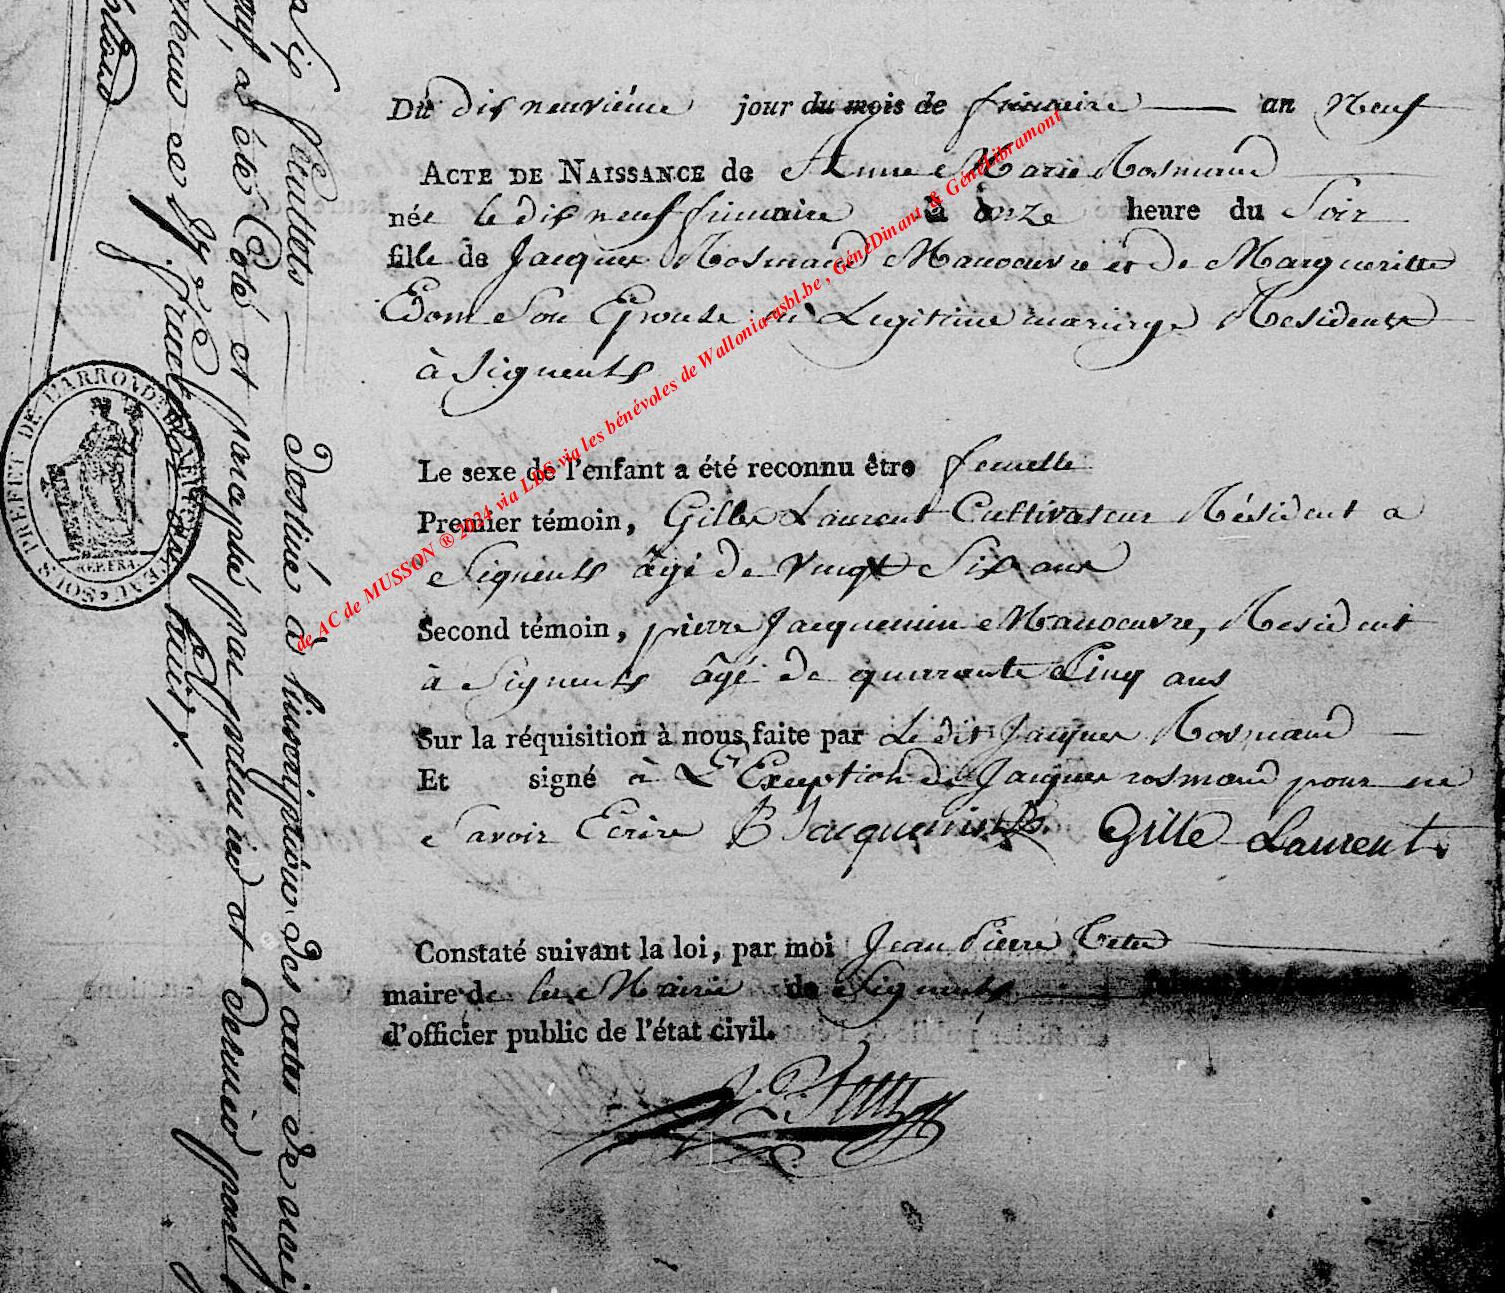 Du dis neuviéme jour du mois de frimaire an Neuf
ACTE DE NAISSANCE de Anne Marie Rosmand
née le dis neuf frimaire à onze heure du Soir
fille de Jacques Rosmand Manoeuvre et de Margueritte
Son Epouse en Legitime mariage Residents
à Signeuls
Le sexe de l'enfant a été reconnu être femelle
Premier témoin, Gille Laurent Cultivateur Résident a
Signeuls âgé de vingt Six ans
Second témoin, pierre Jacquemin Manoeuvre, Resident
à Signeuls âgé de quarante Cinq ans
Sur la réquisition à nous faite par Le dit Jacques Rosmand
Et signé à L'Exception de Jacques rosmand pour ne
Savoir Ecrire P Jacquemin Gille Laurent
Constaté suivant la loi, par moi Jean Pierre
maire de la Mairie de Signeuls
d'officier public de l'état civil.
feuillets destiné à l'inscription des actes de
a été Coté et paraphé par premier et dernier par
PREFET DE L'ARROND
REP. FRA.
de AC de MUSSON ® 2024 via LDS via les bénévoles de Wallonia-asbl.be , GénéDinant & GénéLibramont